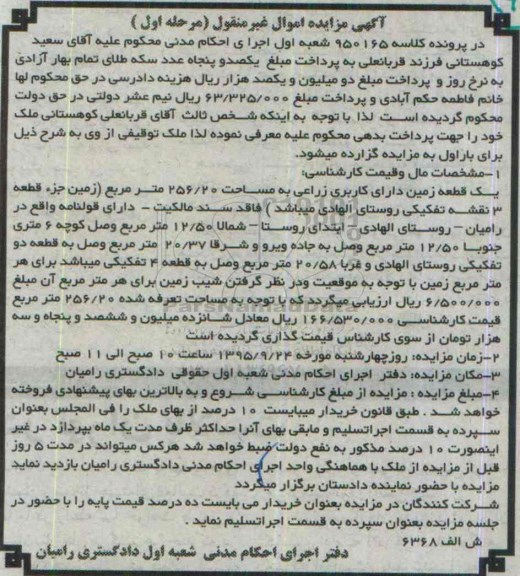 آگهی مزایده اموال غیرمنقول (مرحله اول )
در پرونده کلاسه ۹۵۰۱۶۵ شعبه اول اجرا ی احکام مدنی محکوم علیه آقای سعید
کوهستانی فرزند قربانعلی به پرداخت مبلغ یکصدو پنجاه عدد سکه طلای تمام بهار آزادی
به نرخ روز و پرداخت مبلغ دو میلیون و یکصد هزار ریال هزینه دادرسی در حق محکوم لها
خانم فاطمه حکم آبادی و پرداخت مبلغ ۶۳/۳۲۵/۰۰۰ ریال نیم عشر دولتی در حق دولت
محکوم گردیده است لذا با توجه به اینکه شخص ثالث آقای قربانعلی کوهستانی ملک
خود را جهت پرداخت بدهی محکوم علیه معرفی نموده لذا ملک توقیفی از وی به شرح ذیل
برای باراول به مزایده گزارده میشود.
۱-مشخصات مال وقیمت کارشناسی:
یک قطعه زمین دارای کاربری زراعی به مساحت ۲۵۶/۲۰ متر مربع (زمین جزء قطعه
۳ نقشه تفکیکی روستای الهادی میباشد ) فاقد سند مالکیت - دارای قولنامه واقع در
رامیان – روستای الهادی – ابتدای روستا – شمالا ۱۲/۵۰ متر مربع وصل کوچه ۶ متری
جنوبا ۱۲/۵۰ متر مربع وصل به جاده ویرو و شرقا ۲۰/۳۷ متر مربع وصل به قطعه دو
تفکیکی روستای الهادی و غربا ۲۰/۵۸ متر مربع وصل به قطعه ۴ تفکیکی میباشد برای هر
متر مربع زمین با توجه به موقعیت ودر نظر گرفتن شیب زمین برای هر متر مربع آن مبلغ
۶/۵۰۰/۰۰۰ ریال ارزیابی میگردد که با توجه به مساحت تعرفه شده ۲۵۶/۲۰ متر مربع
قیمت کارشناسی ۱۶۶/۵۳۰/۰۰۰ ریال معادل شانزده میلیون و ششصد و پنجاه و سه
هزار تومان از سوی کارشناس قیمت گذاری گردیده است
۲-زمان مزایده: روزچهارشنبه مورخه ۱۳۹۵/۹/۲۴ ساعت ۱۰ صبح الی ۱۱ صبح
۳-مکان مزایده: دفتر اجرای احکام مدنی شعبه اول حقوقی دادگستری رامیان
۴-مبلغ مزایده : مزایده از مبلغ کارشناسی شروع و به بالاترین بهای پیشنهادی فروخته
خواهد شد . طبق قانون خریدار میبایست ۱۰ درصد از بهای ملک را فی المجلس بعنوان
سپرده به قسمت اجراتسلیم و مابقی بهای آنرا حداکثر ظرف مدت یک ماه بپردازد در غیر
اینصورت ۱۰ درصد مذکور به نفع دولت ضبط خواهد شد هرکس میتواند در مدت ۵ روز
قبل از مزایده از ملک با هماهنگی واحد اجرای احکام مدنی دادگستری رامیان بازدید نماید
مزایده با حضور نماینده دادستان برگزار میگردد
شرکت کنندگان در مزایده بعنوان خریدار می بایست ده درصد قیمت پایه را با حضور در
جلسه مزایده بعنوان سپرده به قسمت اجراتسلیم نماید .
ش الف ۶۳۶۸
دفتر اجرای احکام مدنی شعبه اول دادگستری رامیان